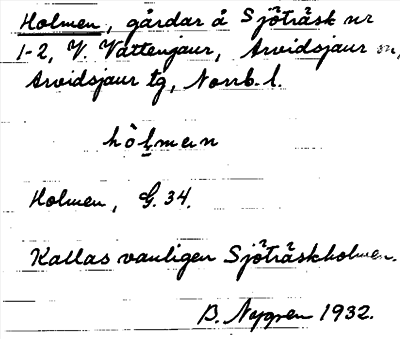 Holmen, gårdar å Sjöträsk nr
1-2, V. Vattenjaur, Arvidsjaur sn,
Arvidsjaur tg, Norrb. l.
hòlmen
Holmen, G. 34.
Kallas vanligen Sjöträskholmen.
B. Nygren 1932.